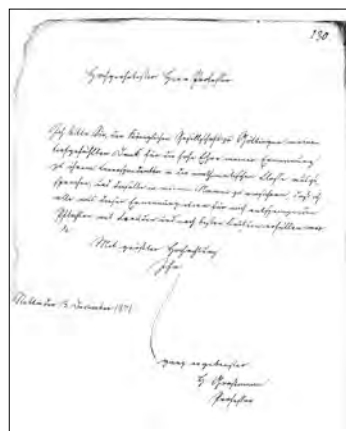 130.
Hochgeehrtester Herr Professor
Ich bitte Sie, der Königlichen Gesellschaft zu Göttingen meinen
tiefgefühlten Dank für die hohe Ehre meiner Ernennung
zu ihrem Correspondenten in der mathematischen Classe auszu
sprechen, und dieselbe in meinem Namen zu versichern, daß ich
alle mit dieser Ernennung für mich
Pflichten mit und nach besten erfüllen wer
de.
Mit größter Hochachtung
Ihr
Stettin den December 1871
ganz ergebenster
H Grassmann
Professor